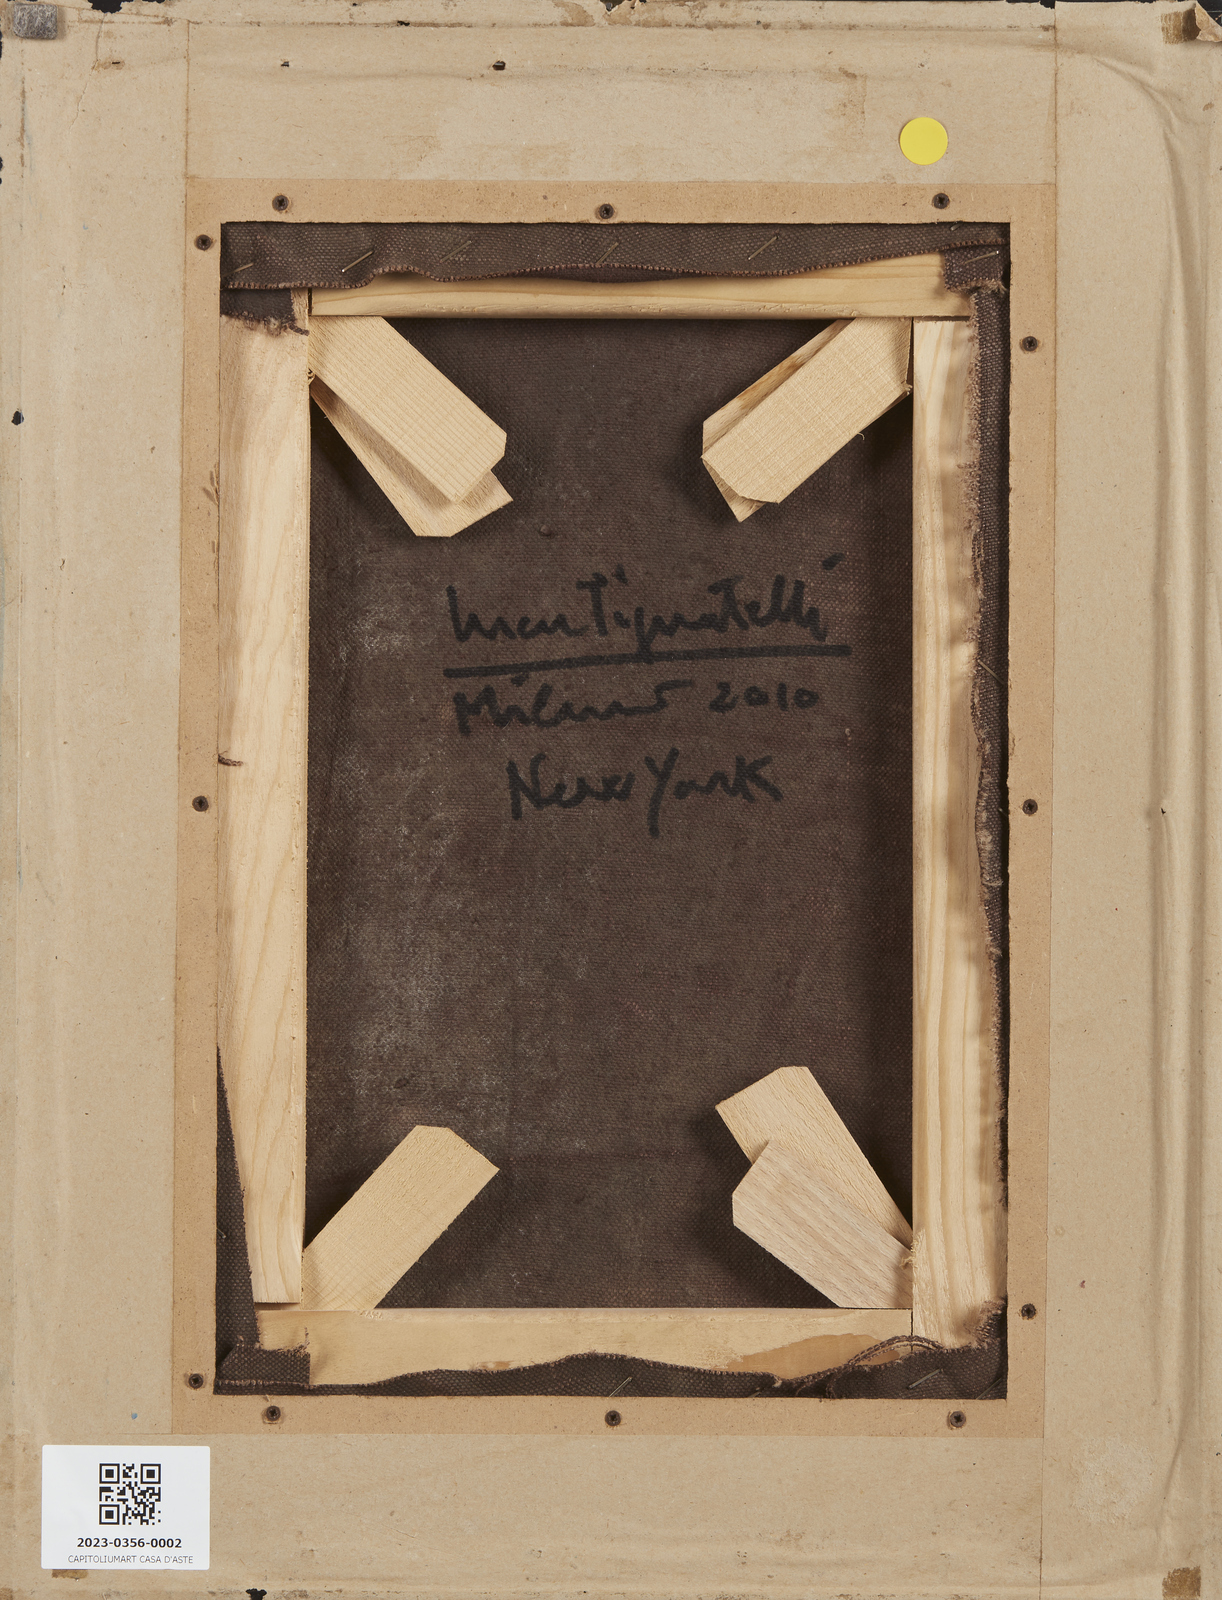 Luca Pignatelli
Milano 2010
New York
2023-0356-0002
CAPITOLIUMART CASA D'ASTE